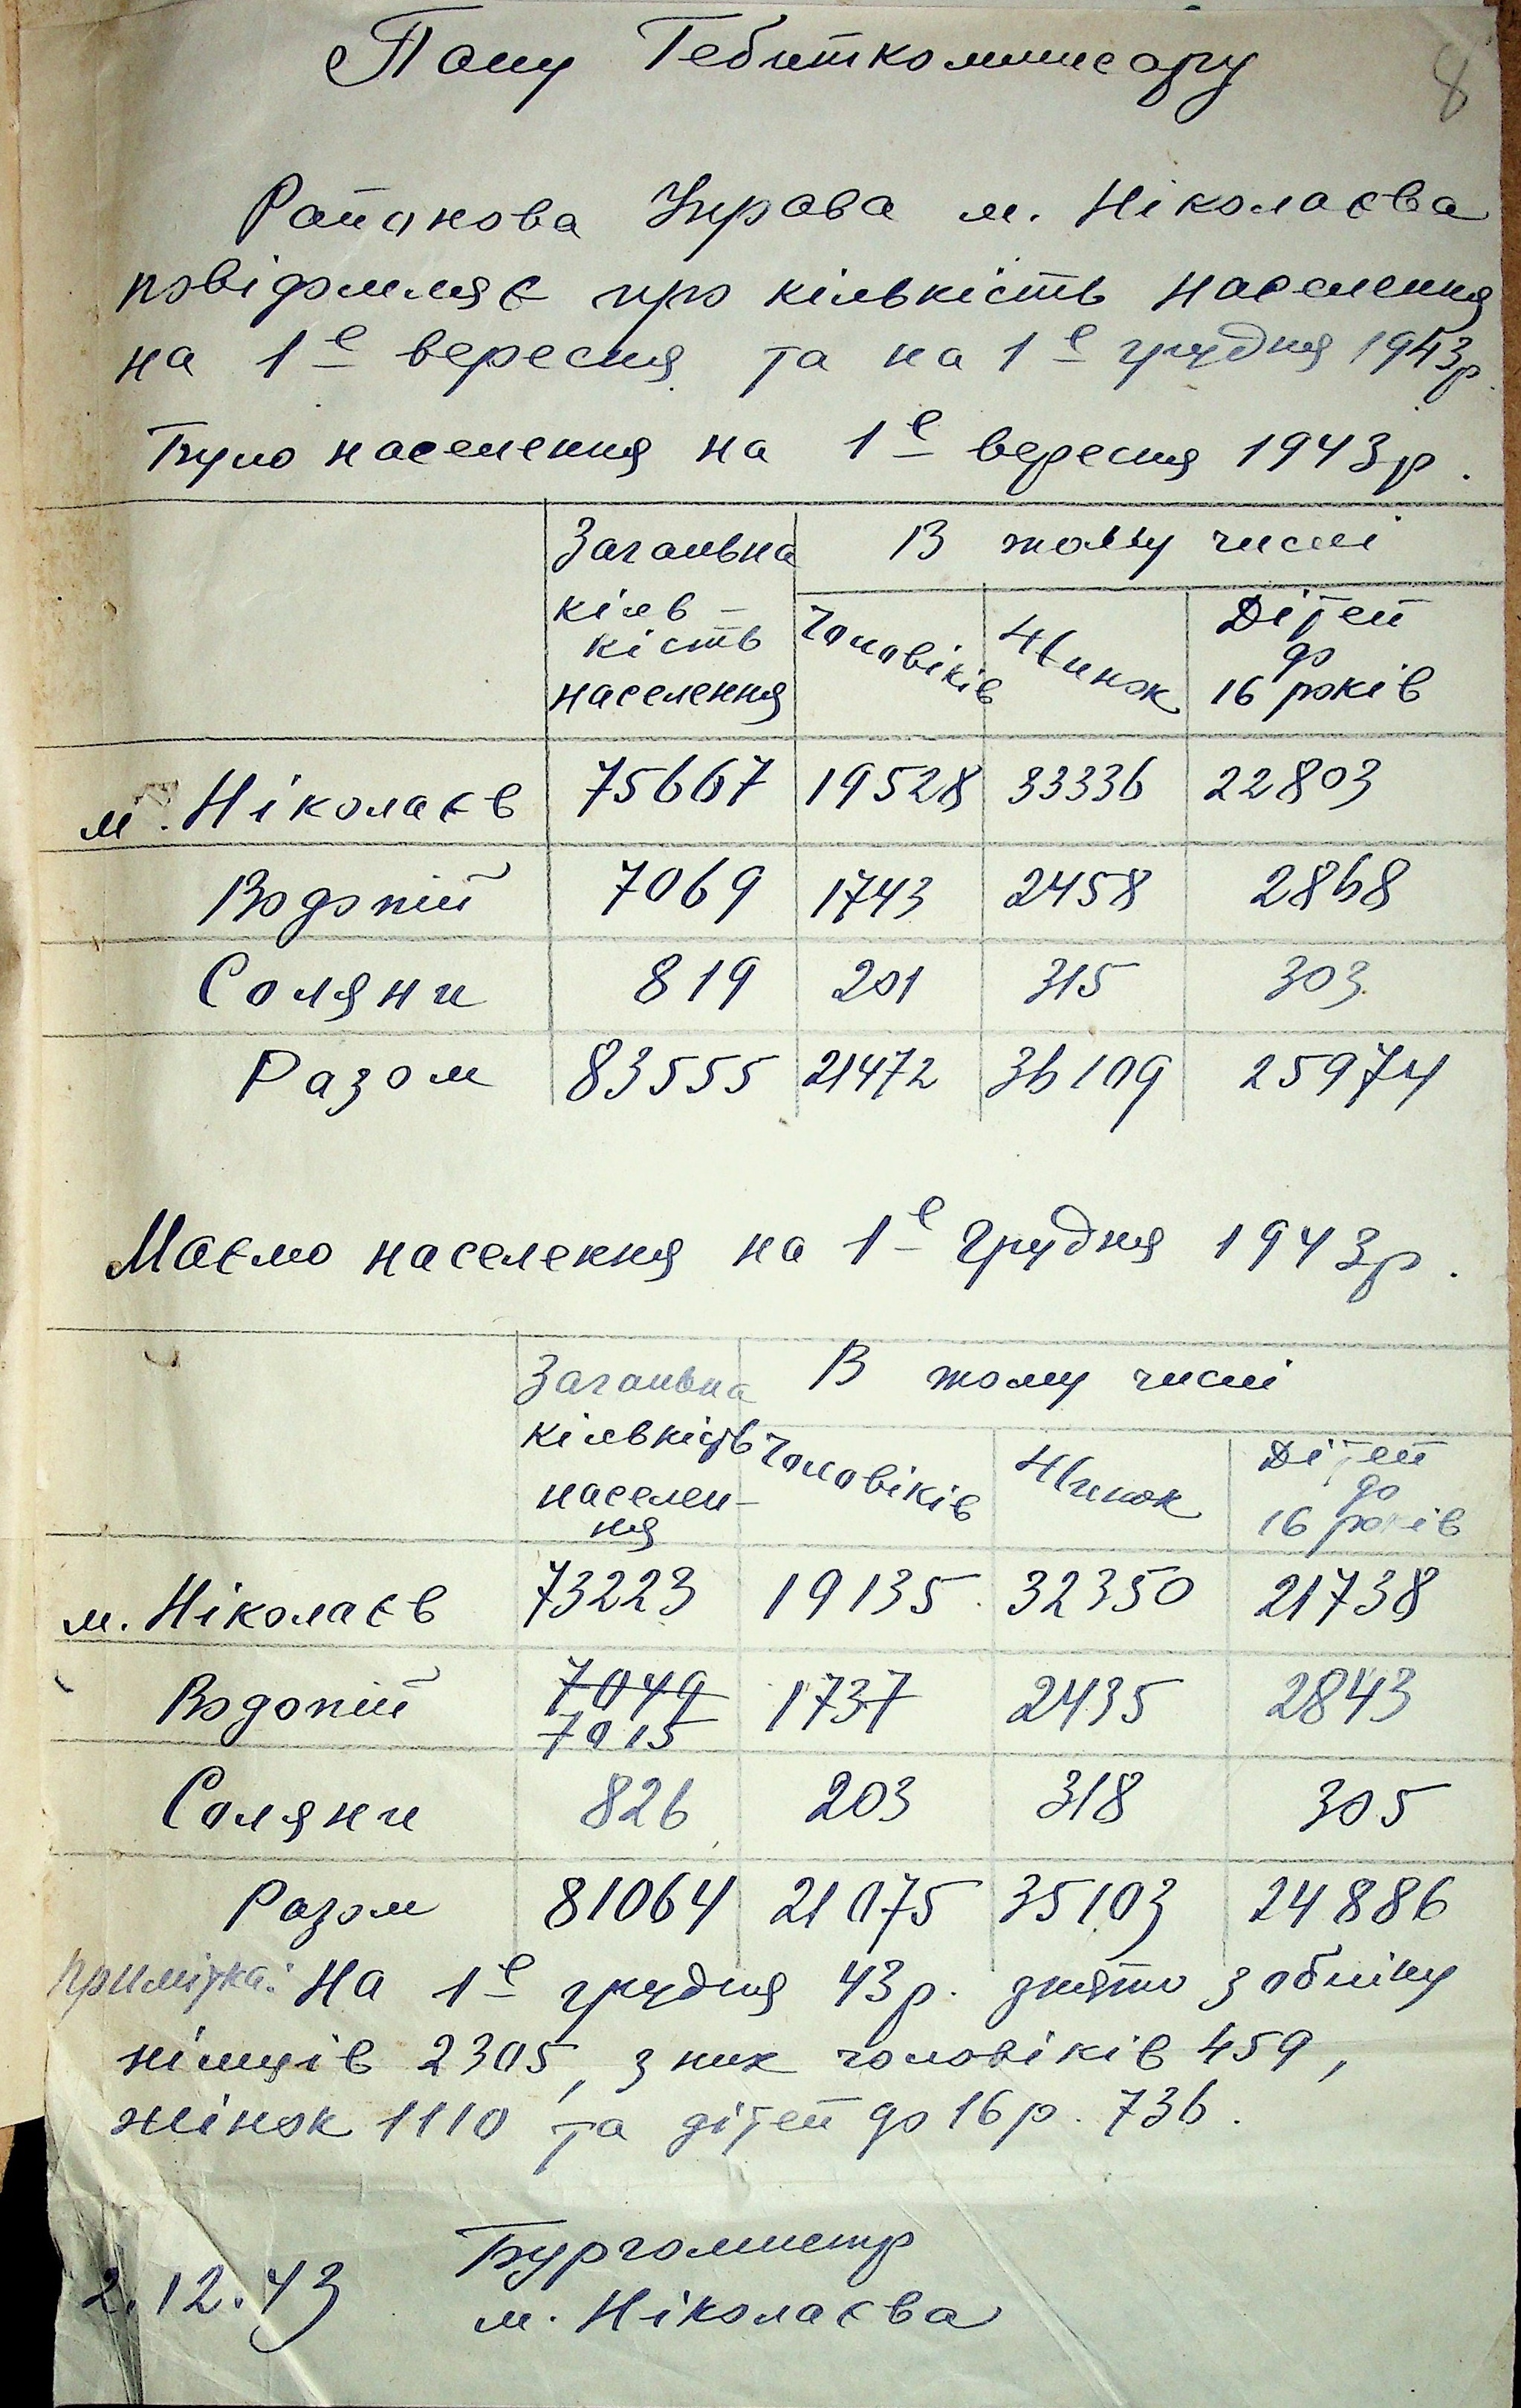 Пану Гебіткоммисару
8
Районова Управа м. Ніколаєва
повідомляє про кількість населення
на 1е вересня та на 1е грудня 1943р.
Було населення на 1е вересня 1943р.
Загальна В тому числі
кіль-
кість
населення Чоловіків Жинок Дітей до 16 років
м. Ніколаєв 75667 19528 33336 22803
Водопій 7069 1743 2458 2868
Соляни 819 201 315 303
Разом 83555 21472 36109 25974
Маємо населення на 1е грудня 1943р.
Загальна В тому числі
кількість
населен-
ня Чоловіків Жинок Дітей до 16 років
м. Ніколаєв 73223 19135 32350 21738
Водопій 7049 1737 2435 2843
7015
Соляни 826 203 318 305
Разом 81064 21075 35103 24886
Примітка: На 1е грудня 43р. знято з обліку
німців 2305, з них чоловіків 459,
жінок 1110 та дітей до 16 р. 736.
Бургомистр
2.12.43 м. Ніколаєва